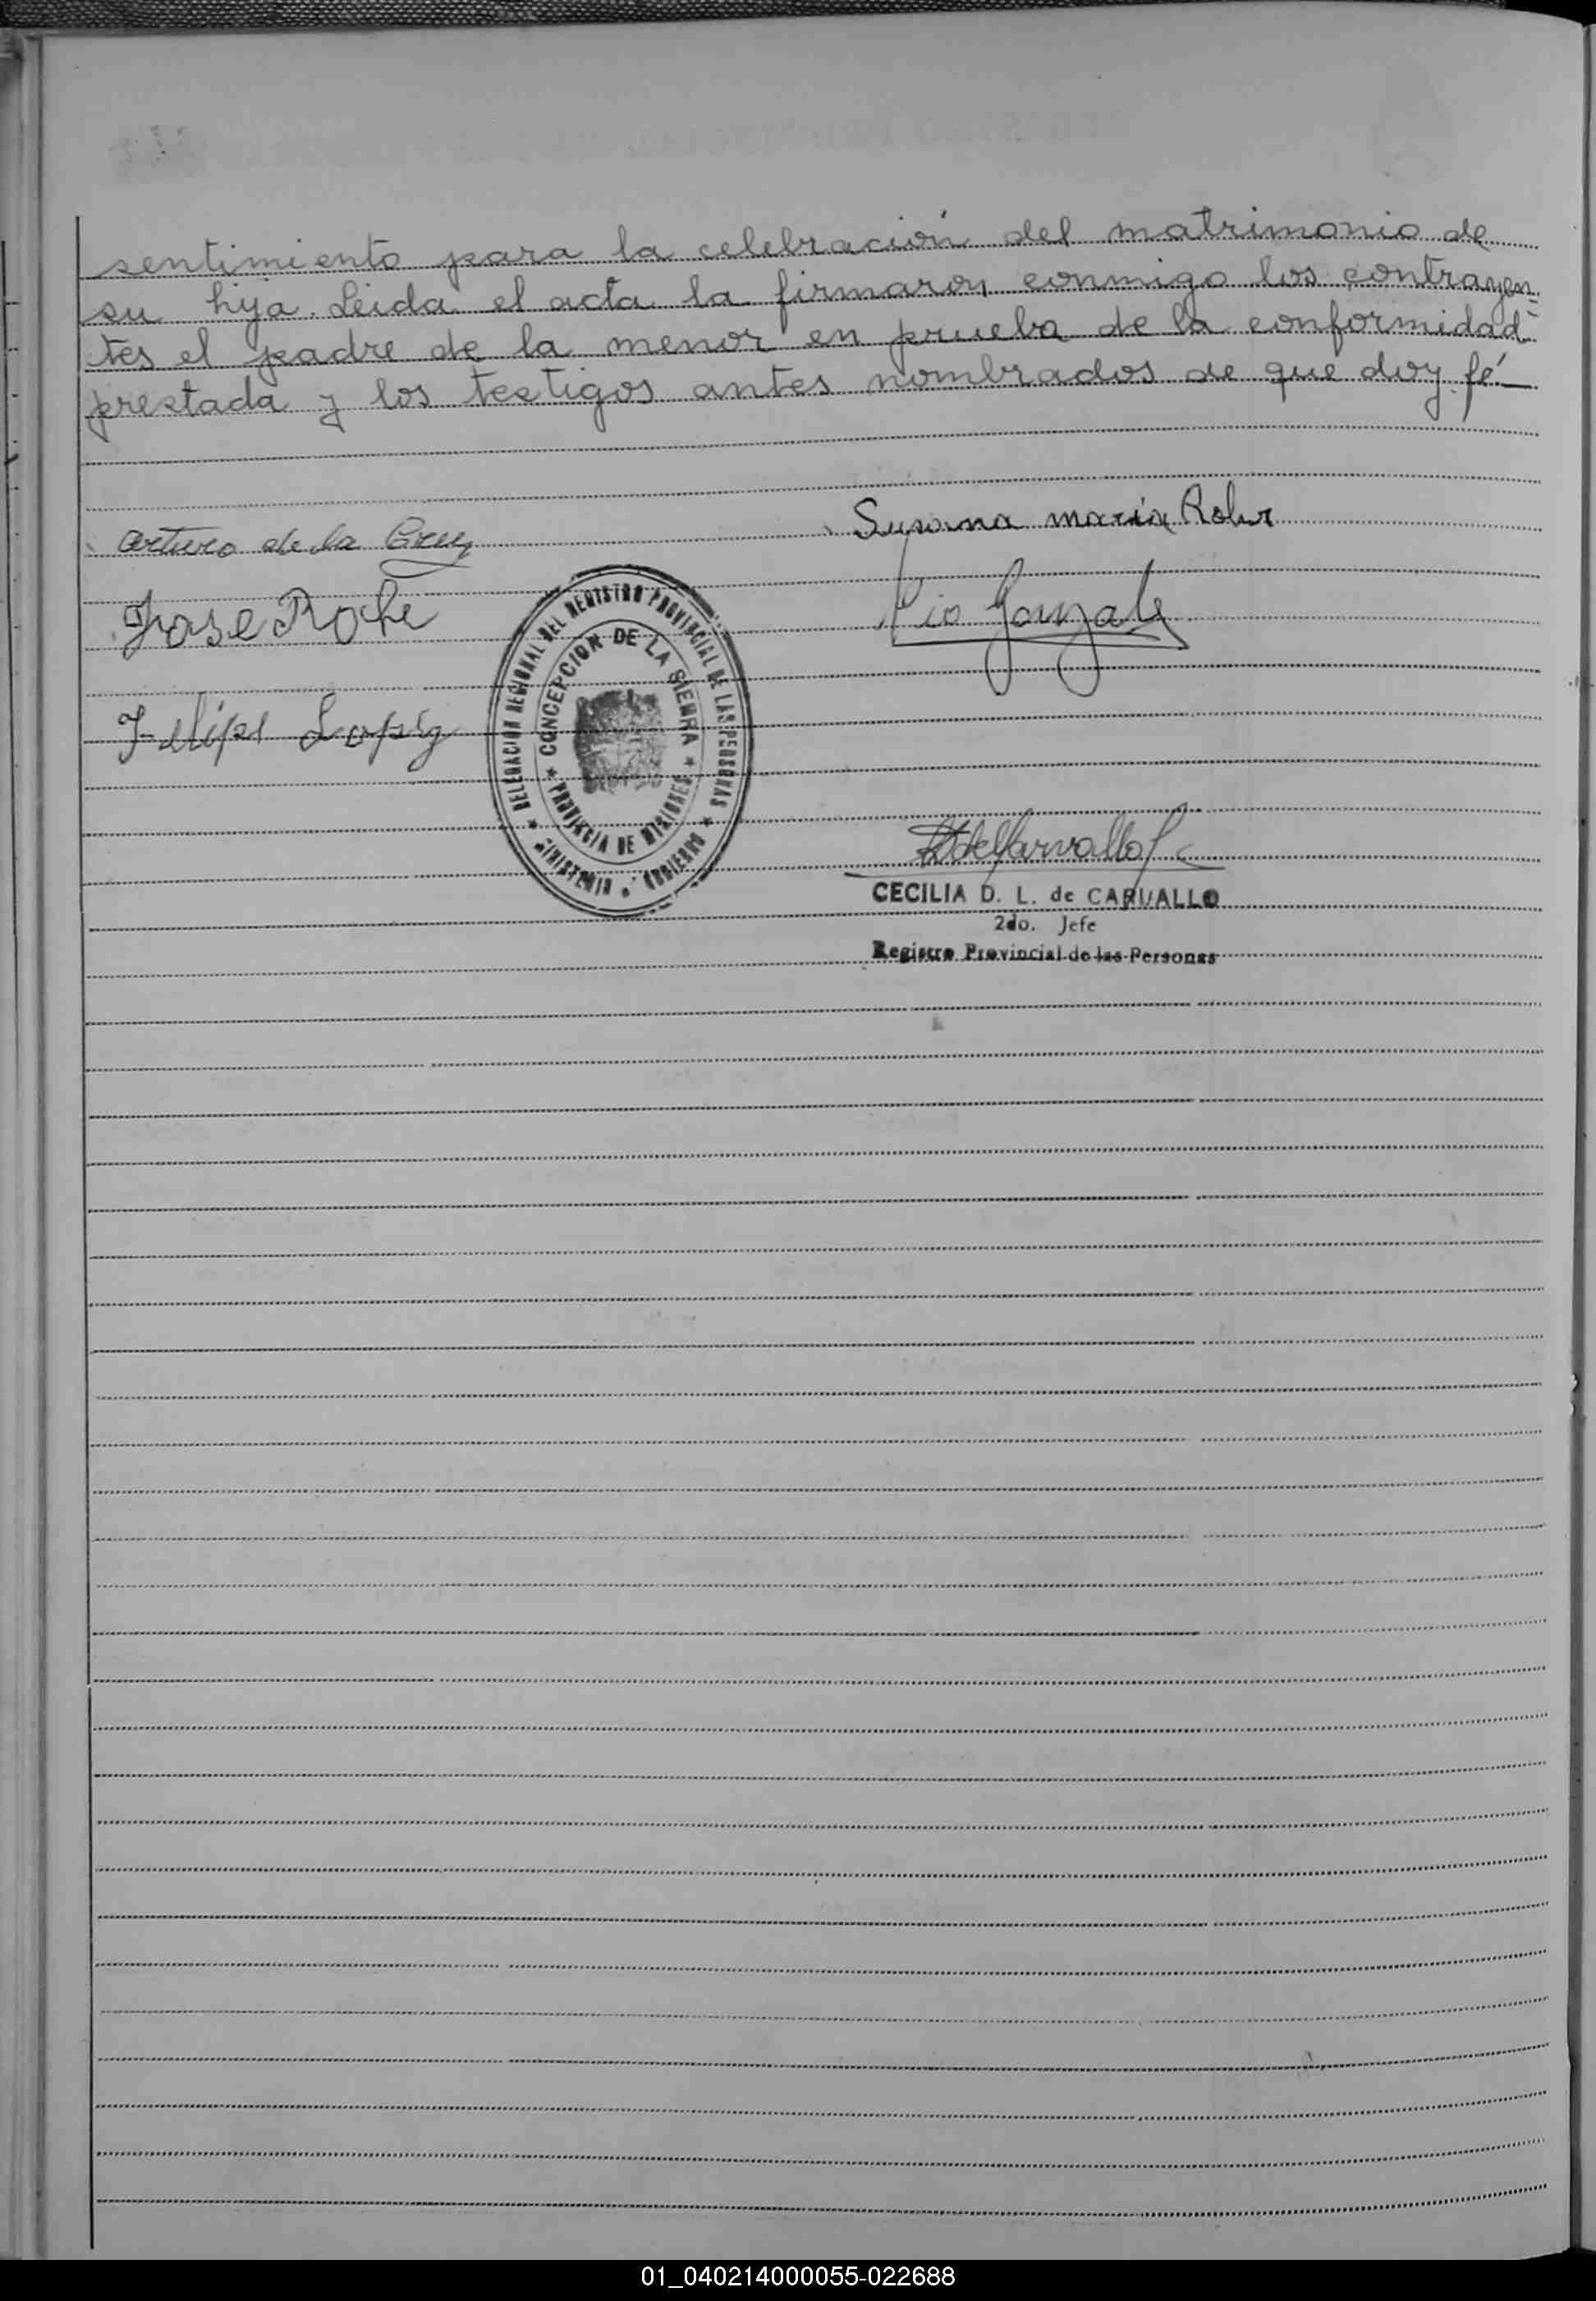 sentimiento para la celebración del matrimonio de
su hija. Leida el acta la firmaron conmigo los contrayen-
tes el padre de la menor en prueba de la conformidad
prestada y los testigos antes nombrados de que doy fé
Arturo de la Cruz
Susana maria Rohr
Jose Rohr
Pio Gonzale
Felipe Lopez
DELEGACION REGIONAL DEL REGISTRO PROVINCIAL DE LAS PERSONAS
CONCEPCION DE LA SIERRA
PROVINCIA DE MISIONES
MINISTERIO GOBIERNO
CECILIA D. L. de CARVALLO
2do. Jefe
Registro Provincial de las Personas
01_040214000055-022688